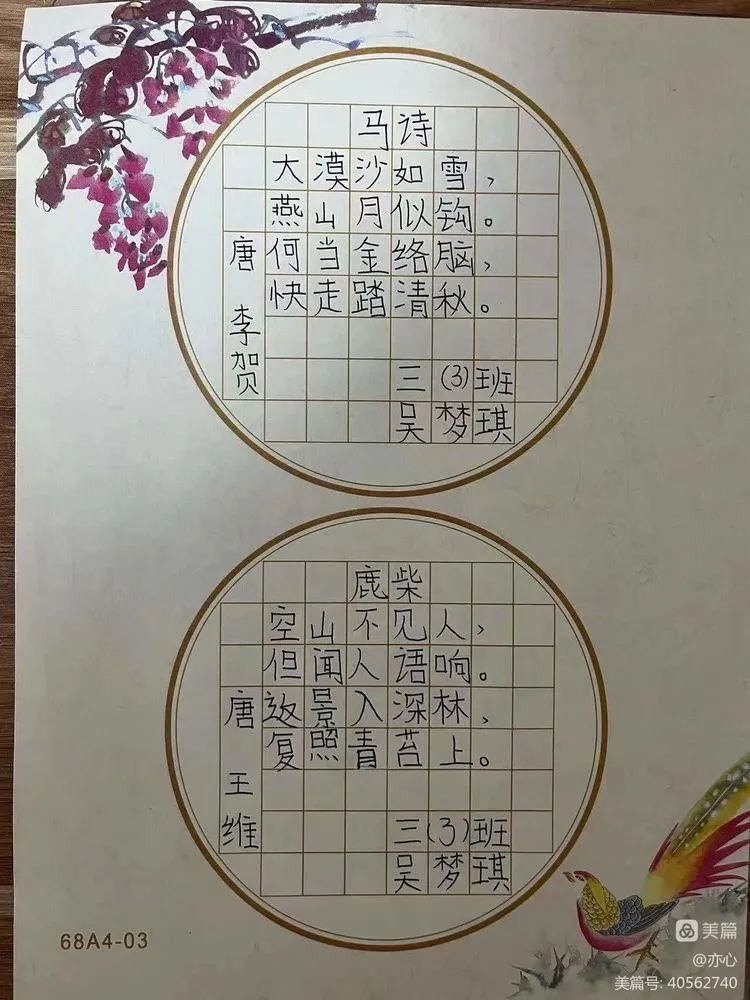 马诗
大漠沙如雪，
燕山月似钩。
何当金络脑，
快走踏清秋。
唐 李贺
三(3)班
吴梦琪
鹿柴
空山不见人，
但闻人语响。
返景入深林，
复照青苔上。
唐 王维
三(3)班
吴梦琪
68A4-03
美篇
@亦心
美篇号: 40562740